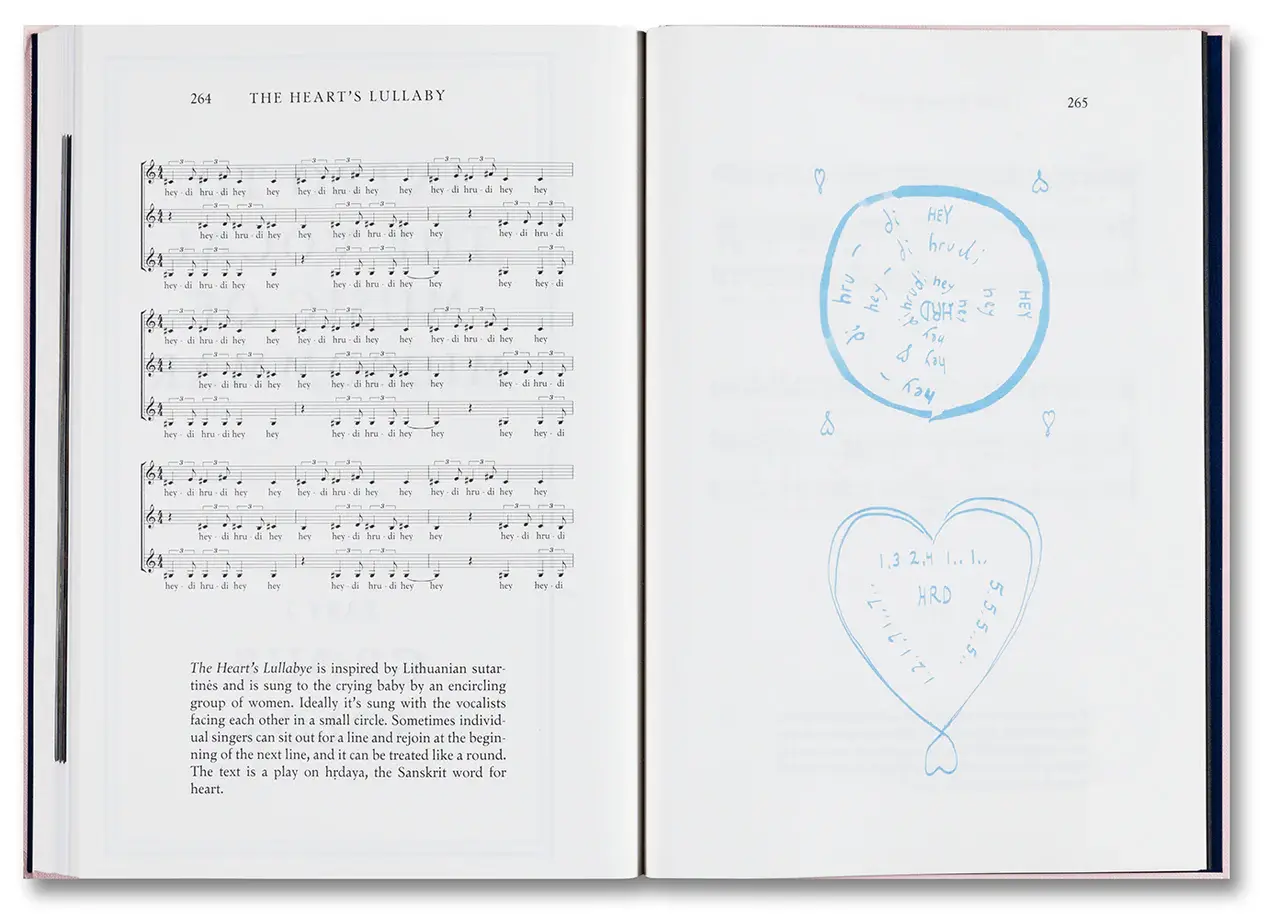 264 THE HEART'S LULLABY
hey - di hru - di hey hey hey - di hru - di hey hey hey - di hru - di hey hey
hey - di hru - di hey hey hey - di hru - di hey hey hey - di hru - di
hey - di hru - di hey hey hey - di hru - di hey hey hey - di
hey - di hru - di hey hey hey - di hru - di hey hey hey - di hru - di hey hey
hey - di hru - di hey hey hey - di hru - di hey hey hey - di hru - di
hey - di hru - di hey hey hey - di hru - di hey hey hey - di
hey - di hru - di hey hey hey - di hru - di hey hey hey - di hru - di hey hey
hey - di hru - di hey hey hey - di hru - di hey hey hey - di hru - di
hey - di hru - di hey hey hey - di hru - di hey hey hey - di
The Heart's Lullabye is inspired by Lithuanian sutar-
tinės and is sung to the crying baby by an encircling
group of women. Ideally it's sung with the vocalists
facing each other in a small circle. Sometimes individ-
ual singers can sit out for a line and rejoin at the begin-
ning of the next line, and it can be treated like a round.
The text is a play on hṛdaya, the Sanskrit word for
heart.
265
hey - di hru - di HEY HEY
hey - di hrudi hey hey
di hrudi hey hey hey
HRD
1.3 2.4 1.. 1..
HRD
5.5.5.5..5..